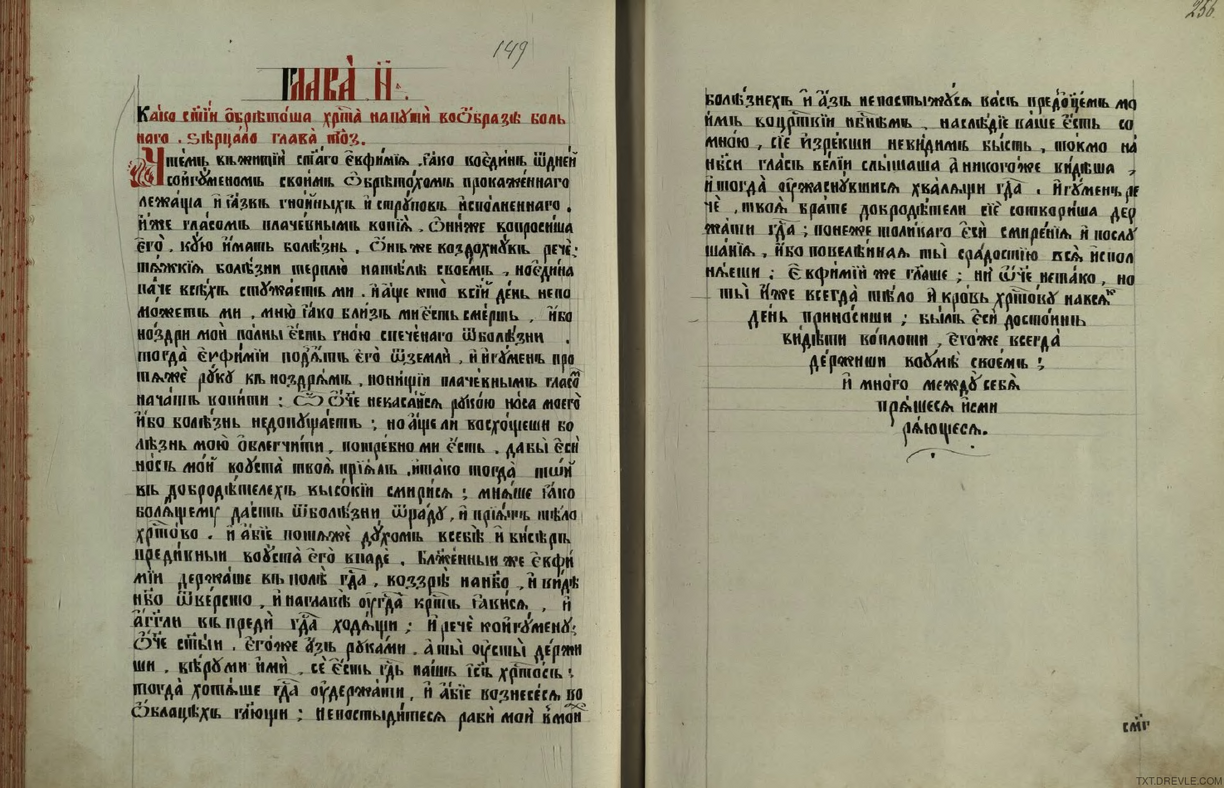 149
ГЛАВА̀ Н҃
Како ст҃їи ѻбрѣтоша хрⷭ҇та̀ на пꙋтѝ во ѻбразѣ боль
наго . Зе́рцало глава̀ тѡ҃з.
Чте́мъ въ житїи ст҃а́гѡ є҆вфи́мїѧ , ꙗ҆́ко во є҆ди́нъ ѿ дне́й
со и҆гꙋ́меномъ свои́мъ ѻ҆брѣто́хомъ прокаже́ннаго
лежа́ща и҆ ꙗ҆́звъ гно́йныхъ и҆ стрꙋ́повъ и҆спо́лненнаго .
и҆́же гла́сомъ плаче́внымъ вопїѧ̀ . Ѻ҆ни́же вопроси́ша
є҆го̀ , кꙋ́ю и҆́мать болѣ́знь . Ѻ҆́нъ же воздохнꙋ́въ речѐ :
тѧ́жкїѧ болѣ́зни терплю̀ на тѣ́лѣ свое́мъ , но є҆ди́на
па́че всѣ́хъ стꙋжа́етъ ми . и҆ а҆́ще кто̀ в сі́й де́нь не по
мо́жетъ ми , мню̀ ꙗ҆́ко бли́зъ ми є҆́сть сме́рть , и҆́бо
но́здри моѝ по́лны є҆́сть гно́ю спече́наго ѿ болѣ́зни .
тогда̀ є҆vфи́мїи под̾ѧ́тъ є҆го̀ ѿ землѝ , и҆ и҆гꙋ́менъ про
тѧ́же рꙋ́кꙋ въ ноздрѧ́мъ , но ни́щїи плаче́внымъ гла́со
нача́тъ вопи́ти : Ѽ Ѻ҆́ч҃е не каса́йсѧ рꙋко́ю но́са моего̀
и҆́бо болѣ́знь не допꙋща́етъ : но а҆́ще ли восхо́щеши бо
лѣ́знь мою̀ ѻ҆блегчи́ти , потре́бно ми є҆́сть . дабы̀ є҆сѝ
но́съ мо́й во ѹ҆ста̀ твоѧ̀ прїѧ́лъ . и҆ та́ко тогда̀ то́й
въ добродѣ́телехъ высо́кїи смири́сѧ : мнѧ́ше ꙗ҆́ко
болѧ́щемꙋ да́стъ ѿ болѣ́зни ѿра́дꙋ , и҆ прїѧ́тъ тѣ́ло
хрⷭ҇то́во . и҆ а҆́бїе потѧ́же дꙋ́хомъ к себѣ̀ и҆ би́серъ
преди́вныи во ѹ҆ста̀ є҆го̀ впадѐ . Бл҃же́нныи же є҆вфи́
мїи держа́ше въ по́лѣ гдⷭ҇а , воззрѣ̀ на нб҃о , и҆ ви́дѣ
нб҃о ѿве́рсто , и҆ на гла́вѣ ѹ҆ гдⷭ҇а крⷭ҇тъ ꙗ҆ви́сѧ , и҆
а҆́гг҃ли въ предѝ гдⷭ҇а ходѧ́щи ; и҆ речѐ ко и҆гꙋ́менꙋ :
Ѻ҆́ч҃е ст҃ы́и . є҆го́же а҆́зъ рꙋка́ми . а҆ ты̀ ѹ҆сты̀ держи
ши . вѣ́рꙋ ми и҆мѝ , сѐ є҆́сть гдⷭ҇ь на́шъ і҆с҃ъ хрⷭ҇то́съ :
тогда̀ хотѧ́ше гдⷭ҇а ѹ҆держа́ти , и҆ а҆́бїе вознесе́сѧ во
ѻ҆́блацѣхъ гл҃ющи : не постыди́тесѧ рабѝ моѝ в мои́
256
болѣ́знехъ и҆ а҆́зъ не постыжꙋ́сѧ ва́съ пред̾ ѻ҆ц҃е́мъ мо
и́мъ во црⷭ҇твїи нбⷭ҇нѣмъ , наслѣ́дїе ва́ше є҆́сть со
мно́ю , сїѐ и҆зре́кши неви́димъ бы́сть , то́кмо на
нб҃си гла́съ ве́лїи слы́шаша а҆ никого́же ви́дѣша ,
и҆ тогда̀ ѹ҆жасну́вшисѧ хвалѧ́щи гдⷭ҇а . и҆гꙋ́менъ ре
чѐ , твоѧ̀ бра́те добродѣ́тели сїѐ сотвори́ша дер
жа́ти гдⷭ҇а ; поне́же толи́каго є҆сѝ смире́нїѧ и҆ послꙋ
ша́нїѧ , и҆́бо повелѣ́ннаѧ ты̀ с ра́достїю всѧ̀ и҆спол
нѧ́еши : Є҆вфи́мїй же гл҃аше ; нѝ ѻ҆́ч҃е не та́ко , но
ты̀ и҆́же всегда̀ тѣ́ло и҆ кро́вь хрⷭ҇то́вꙋ на всѧ́къ
де́нь прино́сиши ; бы́лъ є҆сѝ досто́инъ
ви́дѣти во пло́ти , є҆го́же всегда̀
держи́ши во ѹ҆мѣ̀ свое́мъ ;
и҆ мно́го междꙋ̀ себѧ̀
прѧ́щесѧ и҆ сми
рѧ́ющесѧ .
см҃г
TXT.DREVLE.COM